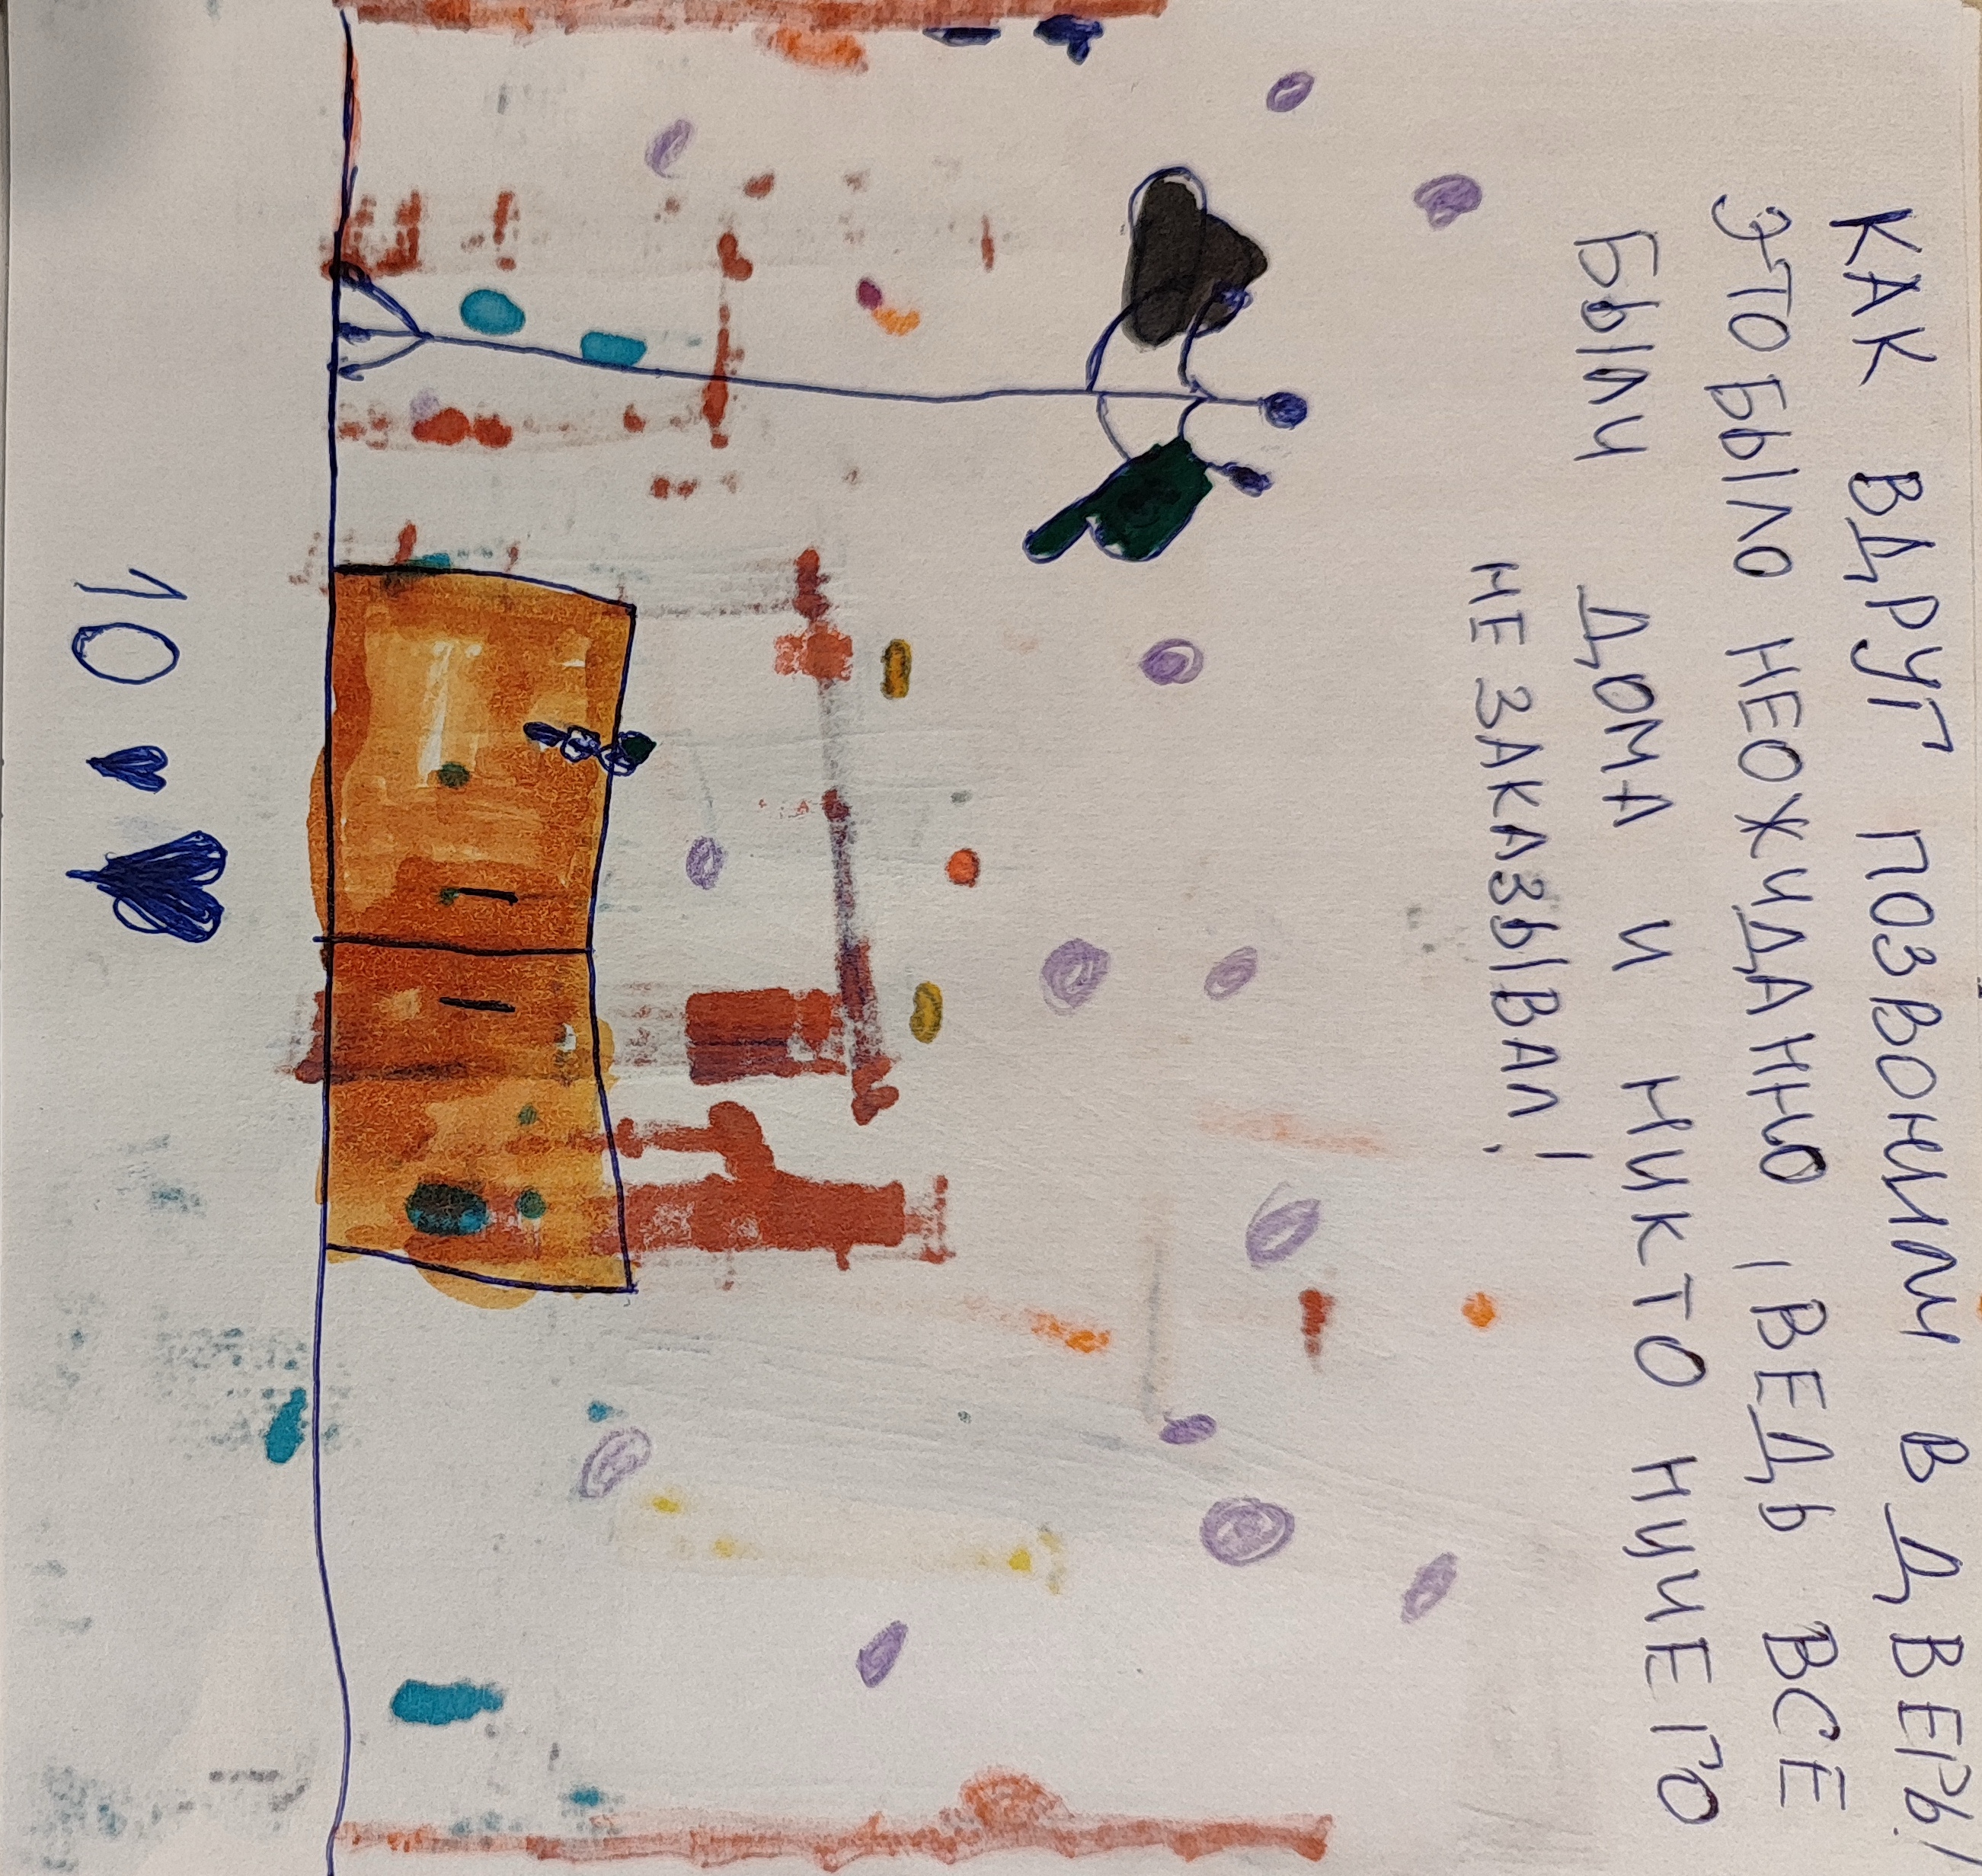 КАК ВДРУГ ПОЗВОНИЛИ В ДВЕРЬ!
ЭТО БЫЛО НЕОЖИДАННО, ВЕДЬ ВСЕ
БЫЛИ ДОМА И НИКТО НИЧЕГО
НЕ ЗАКАЗЫВАЛ!
10